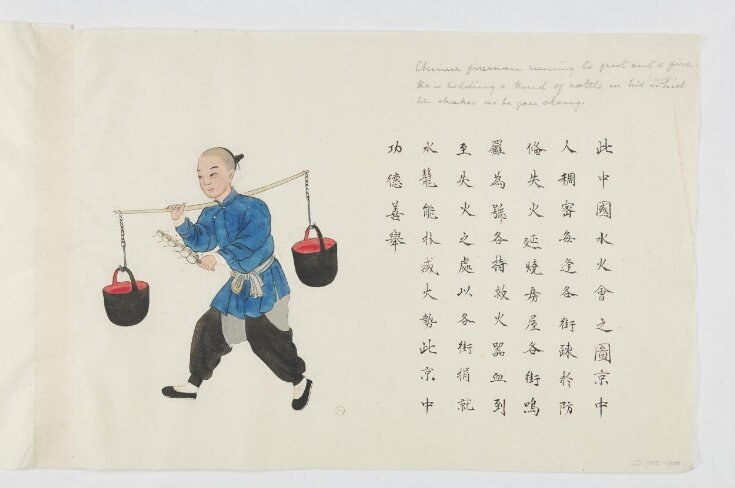 Chinese fireman running to put out a fire.
He is holding a kind of rattle in his hand which
he shakes as he goes along.
此中國水火會之圖京中
人稠密每逢各街疎於防
俻失火延燒房屋各街鳴
鑼為號各持救火器皿到
至失火之處以各街捐就
水籠能扑滅火勢此京中
功德善舉